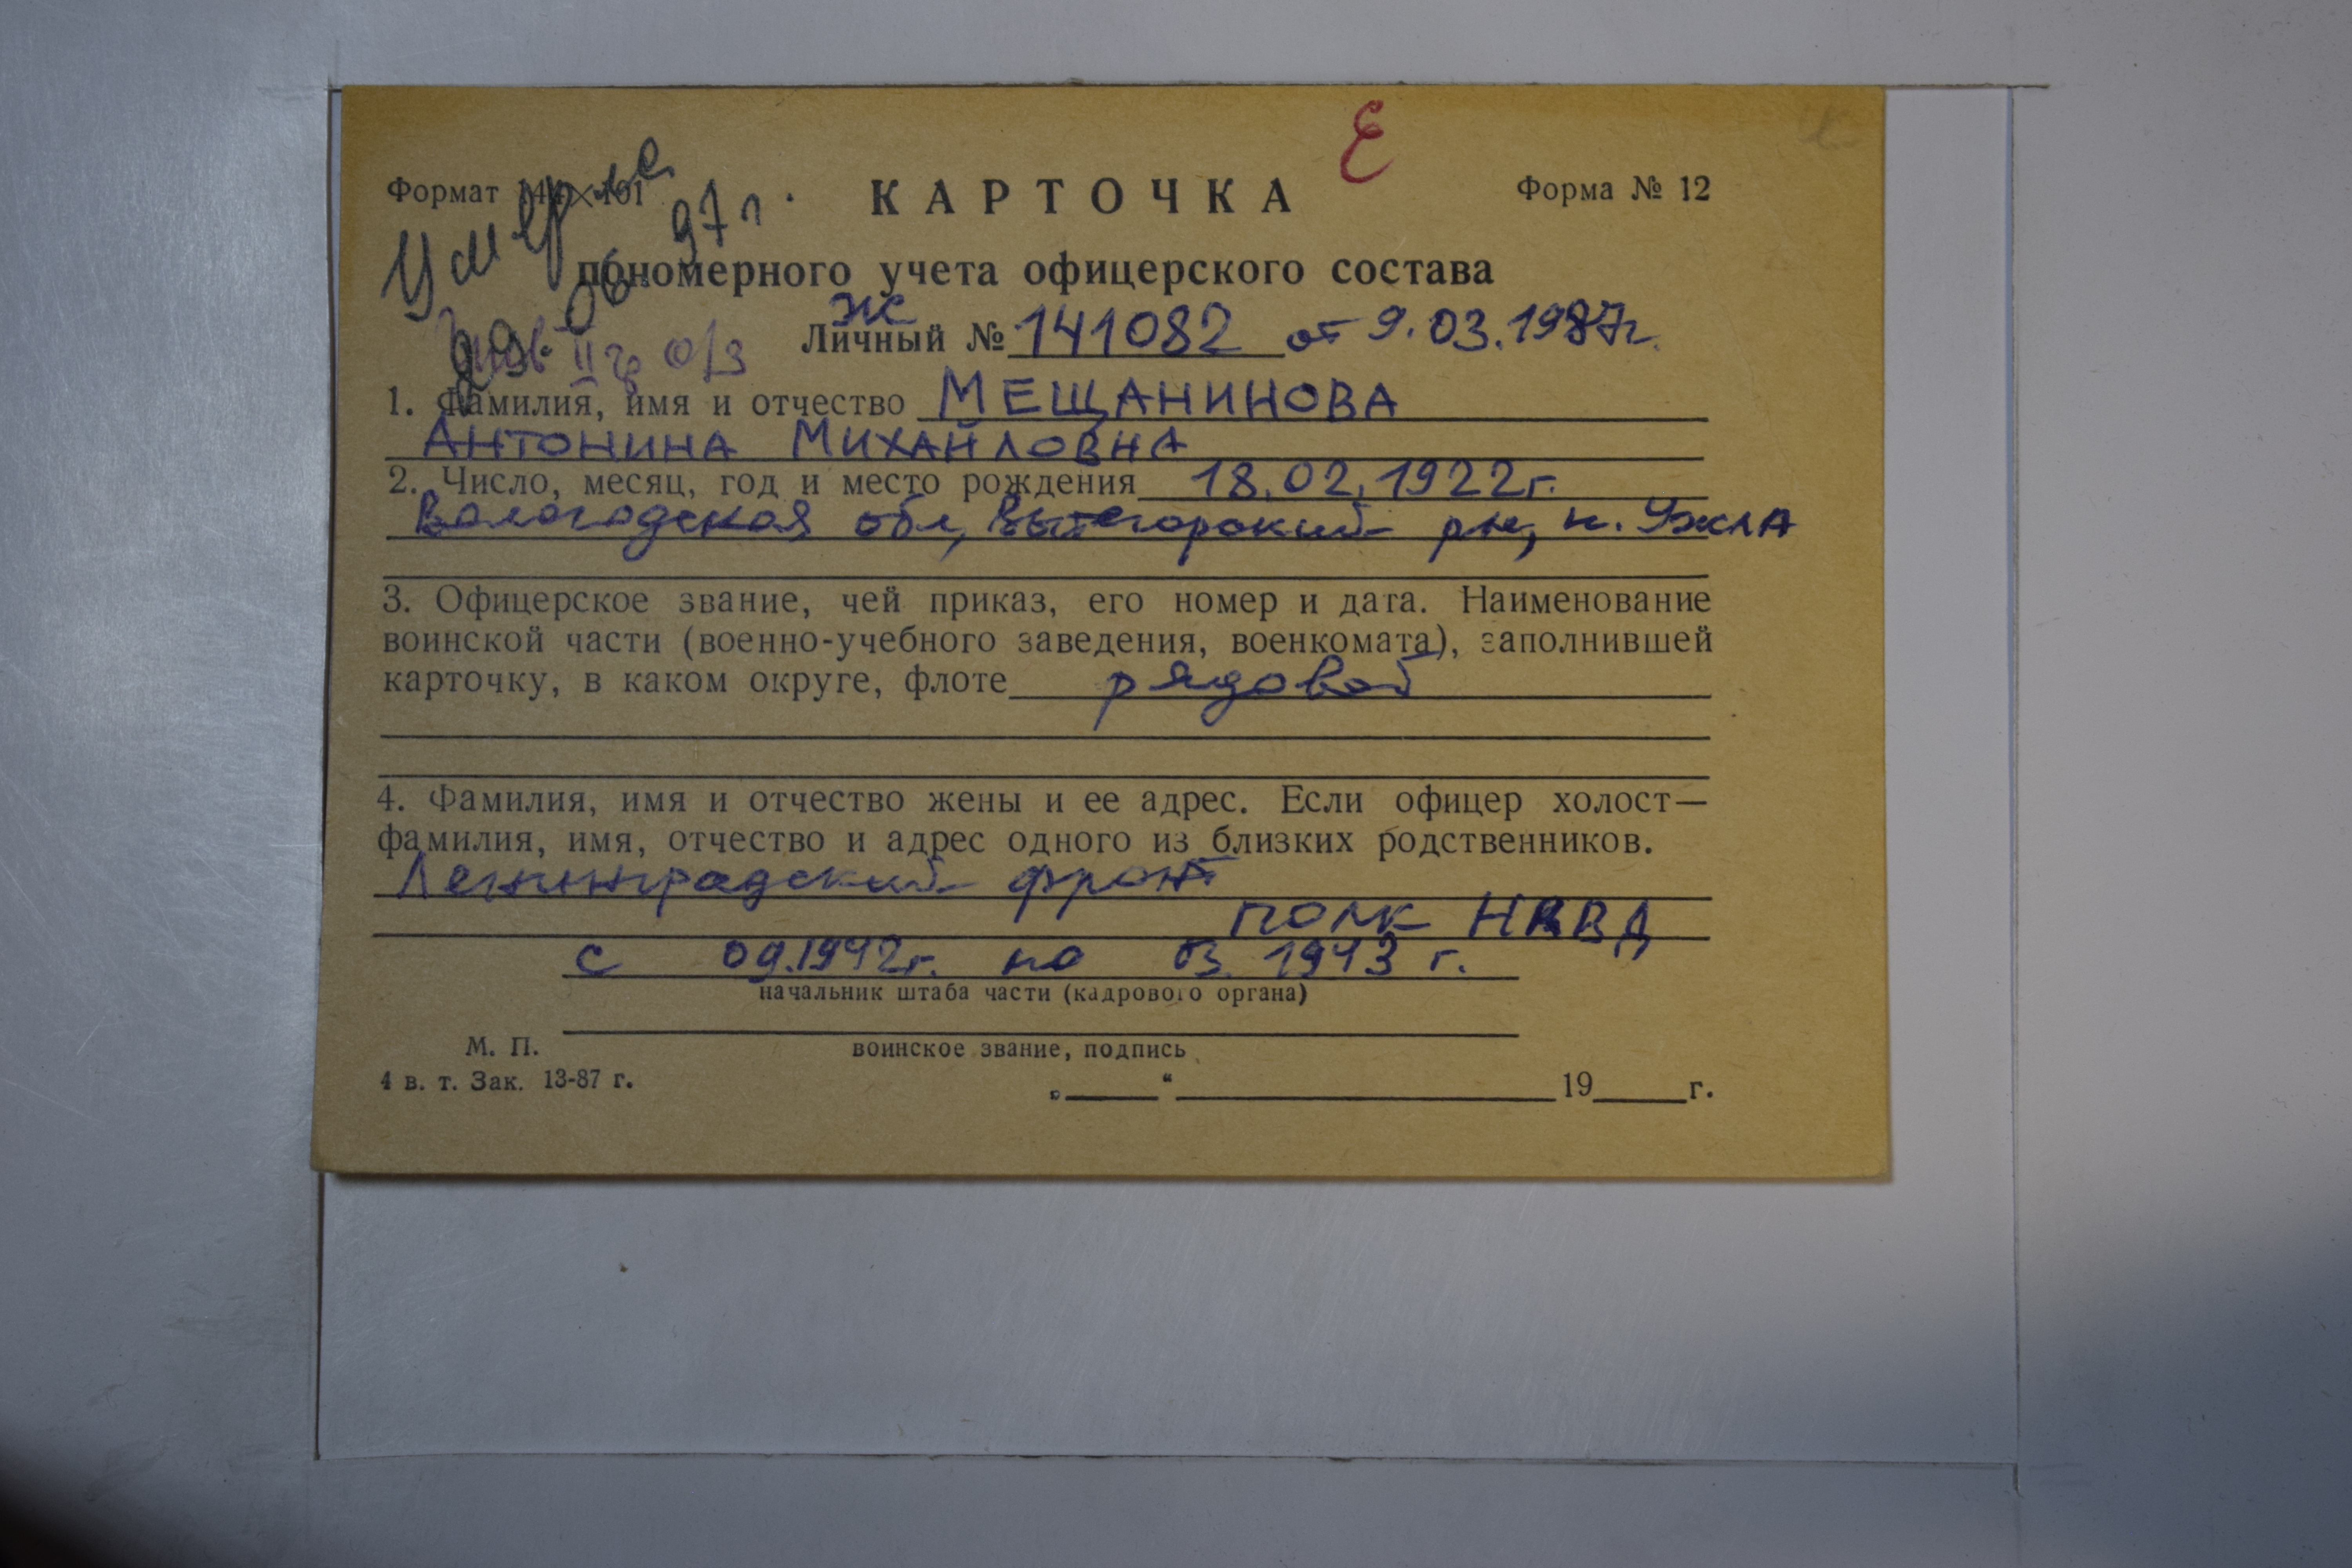 Е
Формат 144×101
КАРТОЧКА
Форма № 12
Умерла
29.06.97 г.
пономерного учета офицерского состава
Ж
Личный № 141082 от 9.03.1987г.
Инв II гр О/З
1. Фамилия, имя и отчество МЕЩАНИНОВА
АНТОНИНА МИХАЙЛОВНА
2. Число, месяц, год и место рождения 18.02.1922г.
Вологодская обл, Вытегорский рн, н. Ужла
3. Офицерское звание, чей приказ, его номер и дата. Наименование
воинской части (военно-учебного заведения, военкомата), заполнившей
карточку, в каком округе, флоте рядовой
4. Фамилия, имя и отчество жены и ее адрес. Если офицер холост—
фамилия, имя, отчество и адрес одного из близких родственников.
Ленинградский фронт
ПОЛК НКВД
с 09.1942г. по 03.1943 г.
начальник штаба части (кадрового органа)
М. П.
воинское звание, подпись
4 в. т. Зак. 13-87 г.
„ “ 19 г.